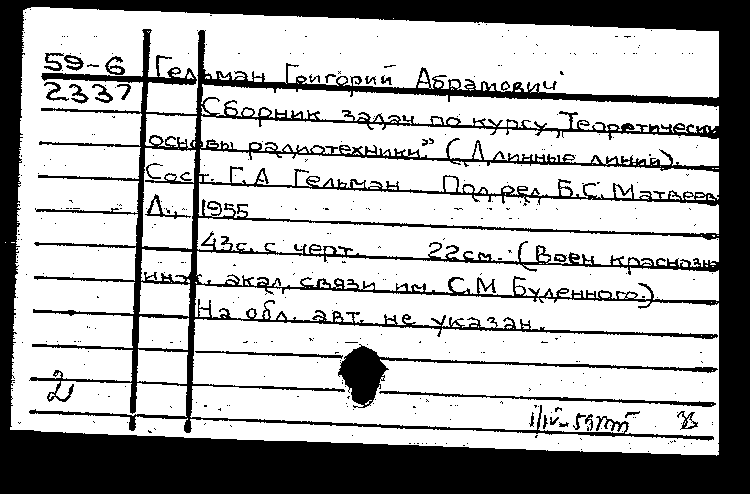 59-6 Гельман, Григорий Абрамович
2337 Сборник задач по курсу "Теоретически
основы радиотехники" (Длинные линии).
Сост. Г.А Гельман Под ред. Б.С. Матвеев
Л., 1955
43с. с черт. 22см. (Воен краснозн
инж. акад. связи им. С.М Буденного.)
На обл. авт. не указан.
2